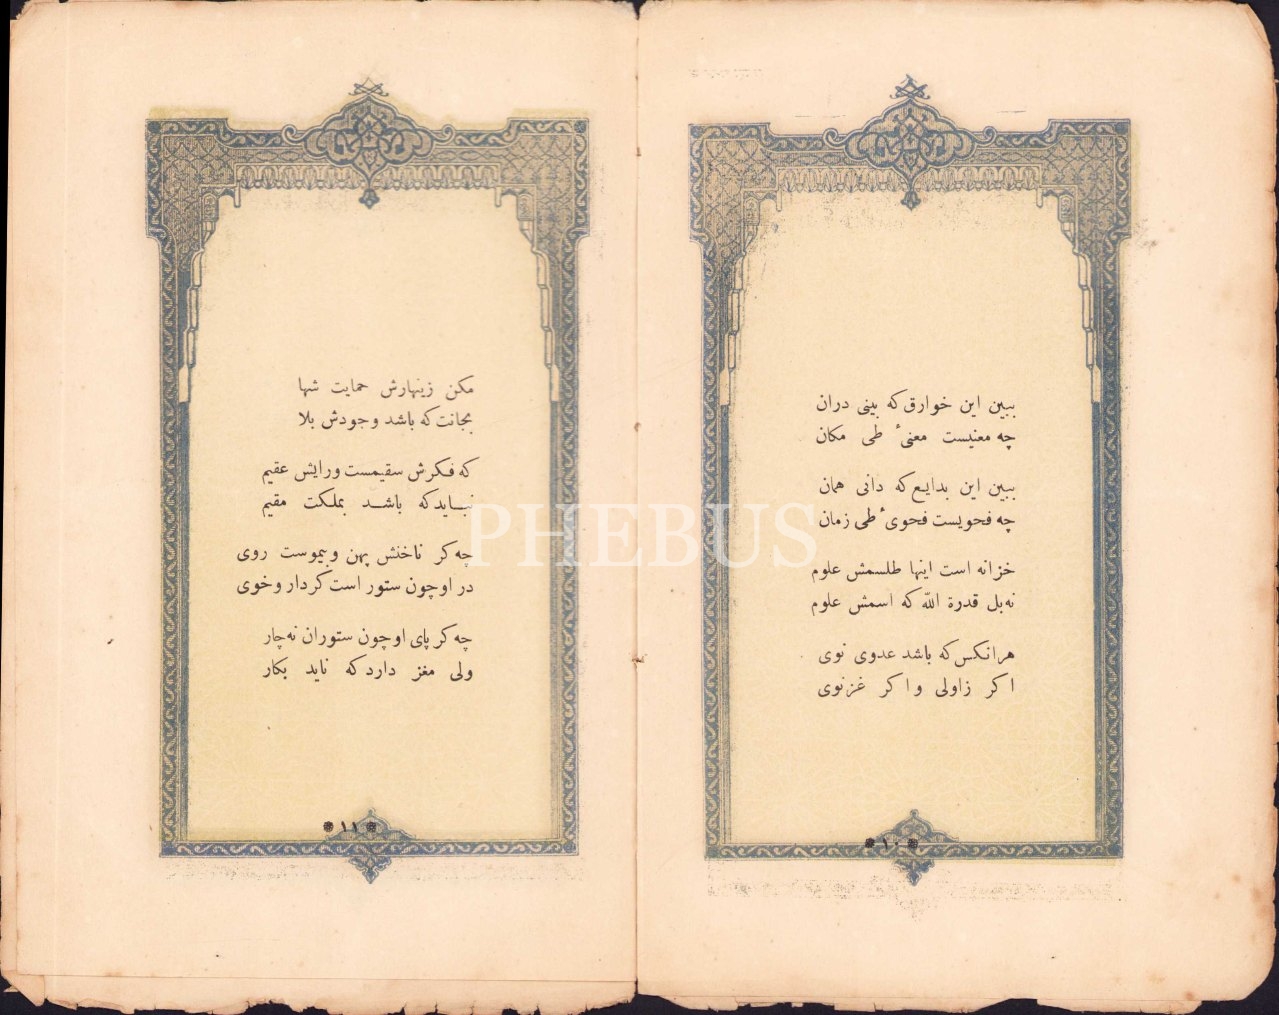 ببین این خوارق که بینی دران
چه معنیست معنیٔ طی مکان
ببین این بدایع که دانی همان
چه فحویست فحویٔ طی زمان
خزانه است اینها طلسمش علوم
نه بل قدرة الله که اسمش علوم
هرانکس که باشد عدوی نوی
اکر زاولی و اکر غزنوی
❋ ١٠ ❋
مکن زینهارش حمایت شها
بجانت که باشد وجودش بلا
که فکرش سقیمست ورایش عقیم
نباید که باشد بملکت مقیم
چه کر ناخنش پهن و بیموست روی
در اوچون ستور است کردار وخوی
چه کر پای اوچون ستوران نه چار
ولی مغز دارد که ناید بکار
❋ ١١ ❋
PHEBUS